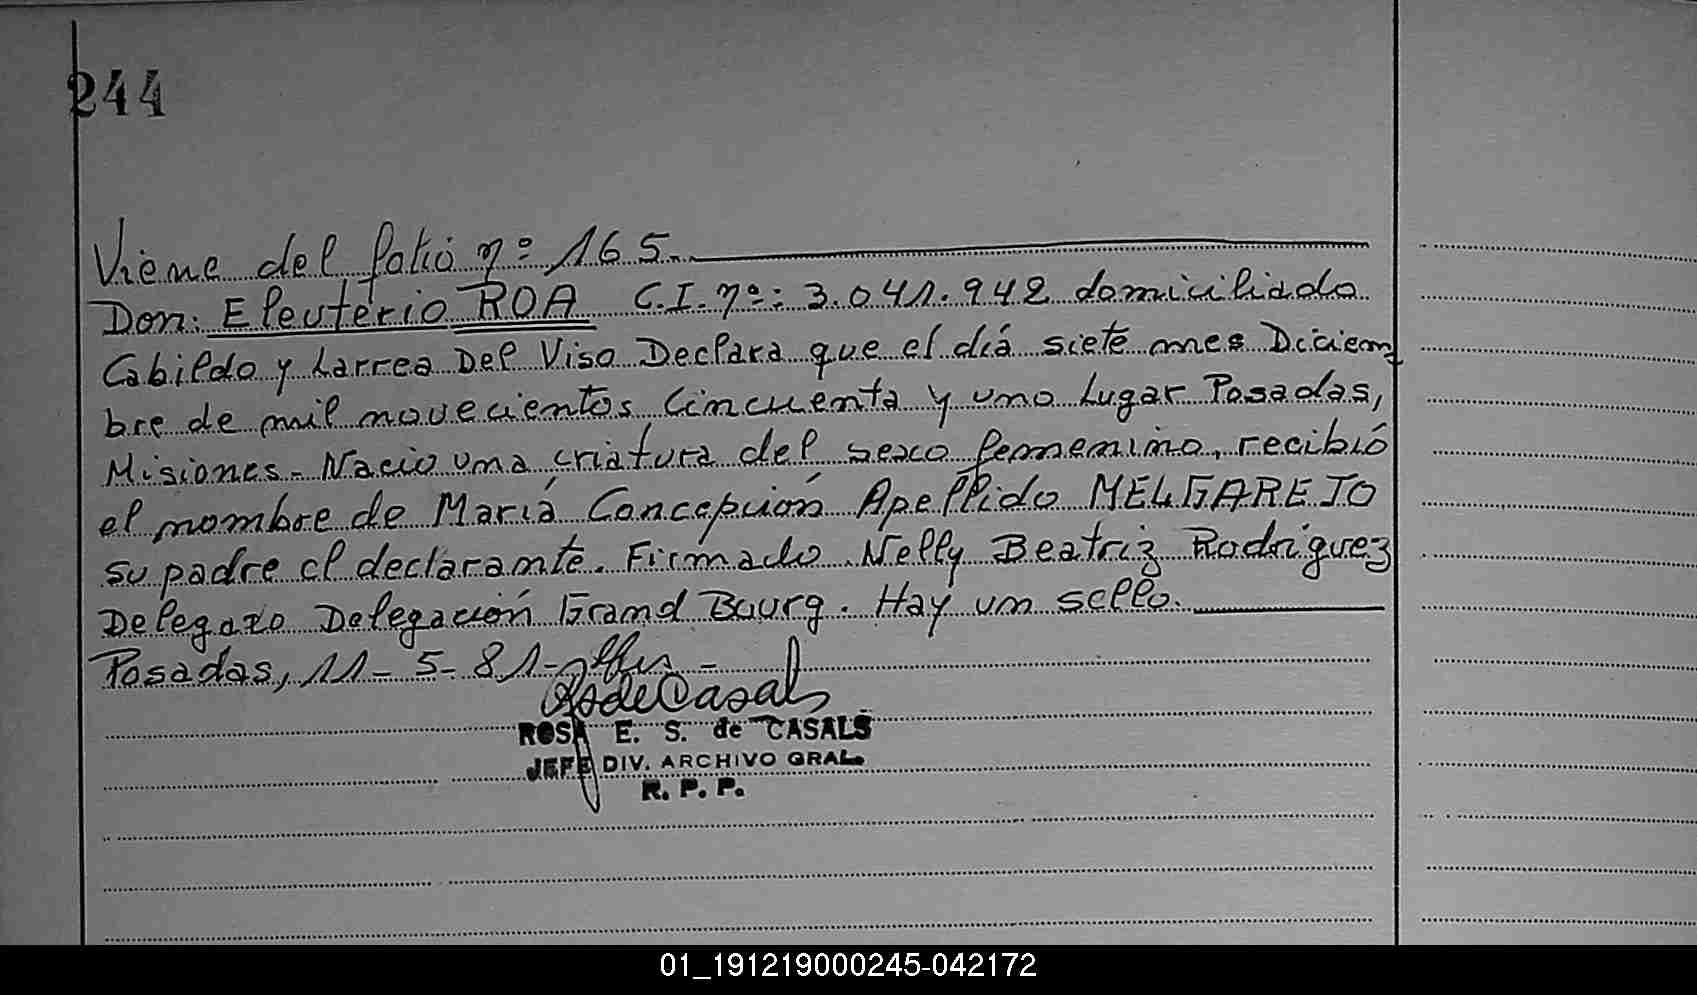 244
Viene del folio nº 165.
Don: Eleuterio ROA C.I. nº: 3.041.942 domiciliado
Cabildo y Larrea Del Viso Declara que el día siete mes Diciem
bre de mil novecientos Cincuenta y uno Lugar Posadas,
Misiones - Nacio una criatura del sexo femenino, recibió
el nombre de María Concepción Apellido MELGAREJO
su padre el declarante. Firmado. Nelly Beatriz Rodriguez
Delegado Delegación Grand Bourg. Hay un sello.
Posadas, 11-5-81-
RSdeCasals
ROSA E. S. de CASALS
JEFE DIV. ARCHIVO GRAL.
R. P. P.
01_191219000245-042172